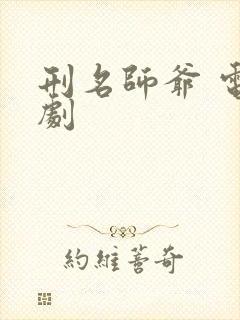 刑名師爺 電
劇
約維蓍奇